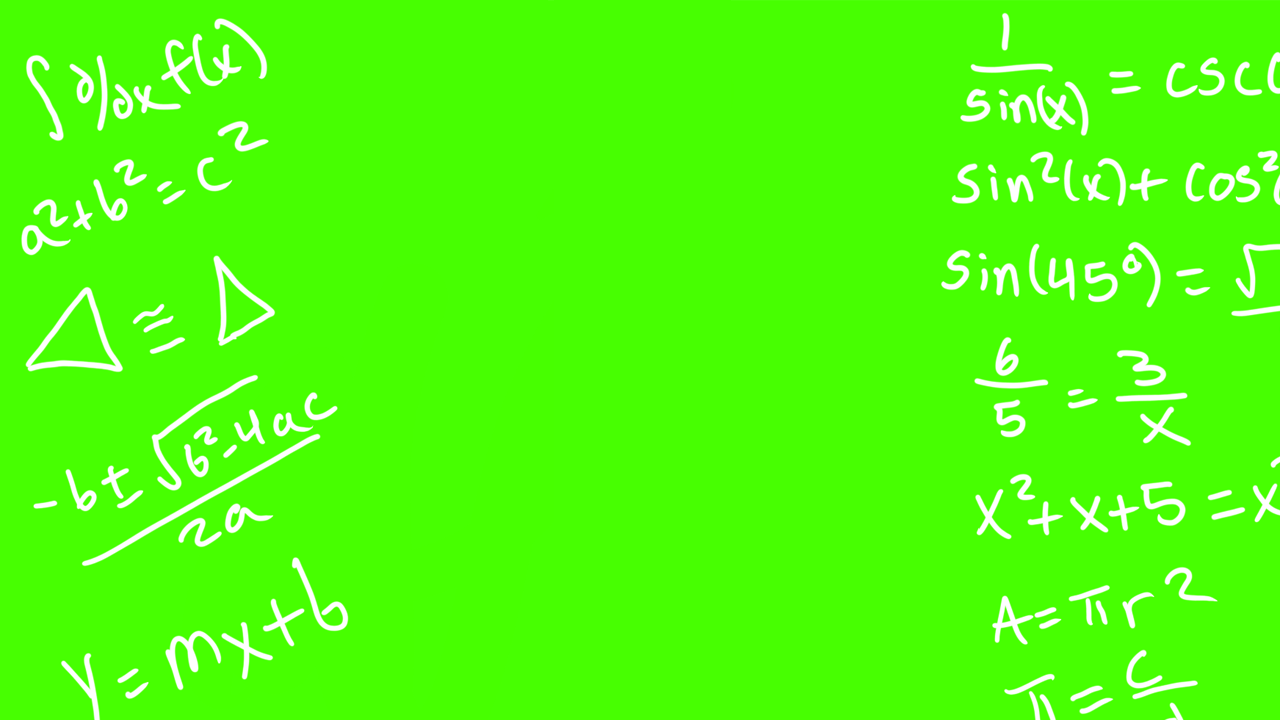 ∫ ∂/∂x f(x)
a²+b²=c²
△ ≅ △
-b±√b²-4ac
2a
y=mx+b
1
sin(x) = csc(
sin²(x)+cos²(
sin(45°)=√
6/5 = 3/x
x²+x+5=x
A=πr²
π=c